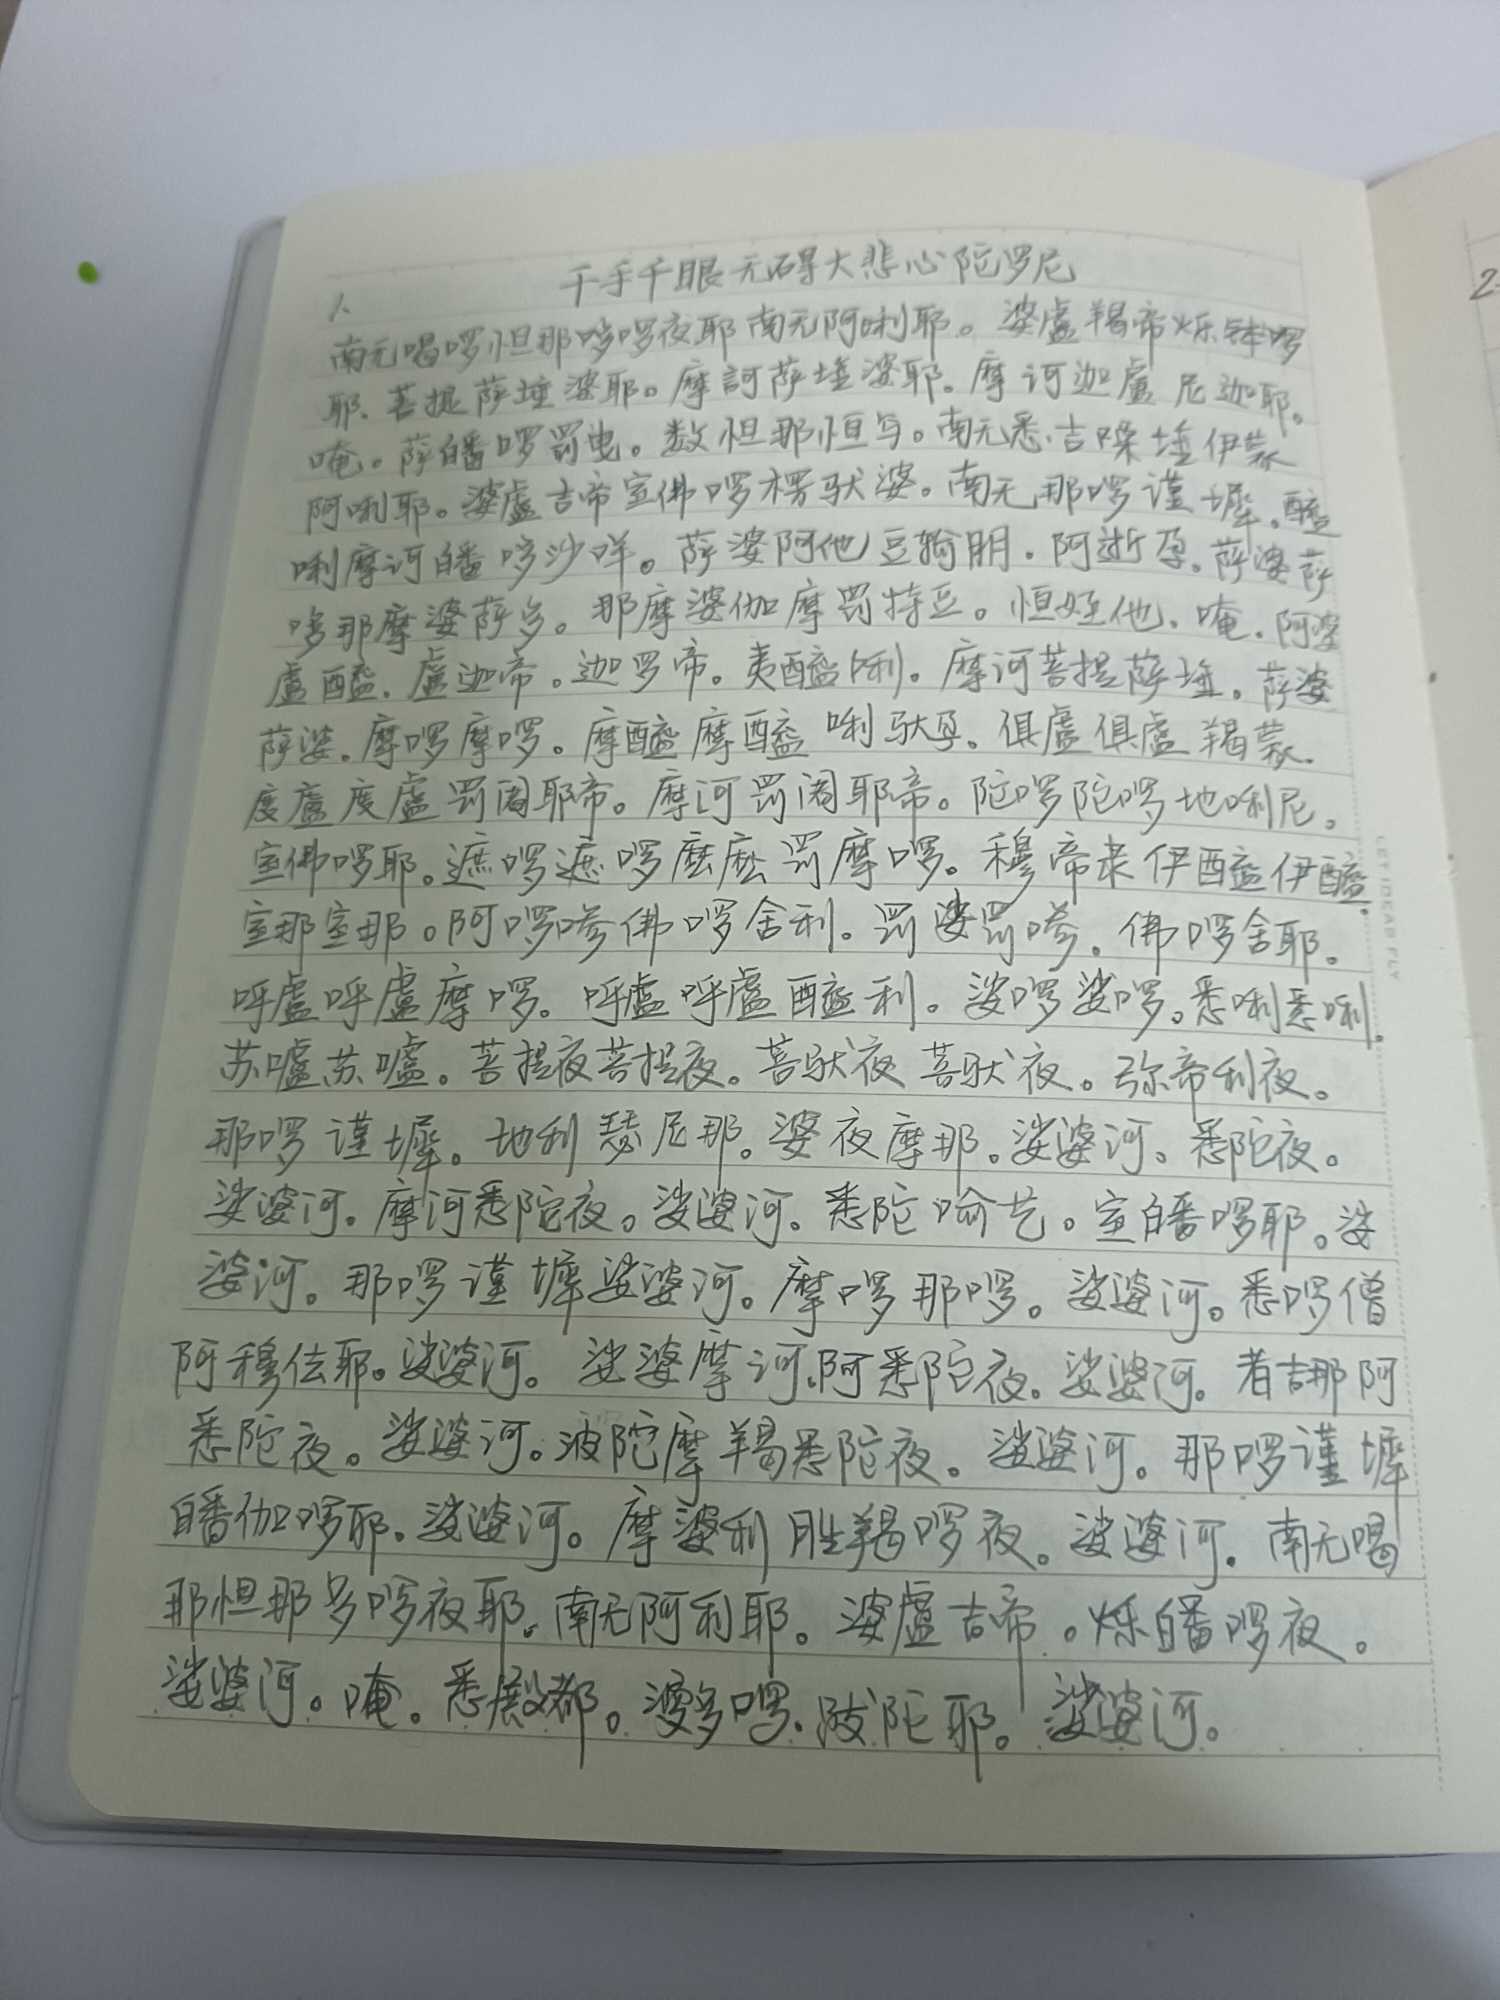 千手千眼无碍大悲心陀罗尼
1.
南无喝啰怛那哆啰夜耶南无阿唎耶。婆盧羯帝烁钵啰
耶、菩提萨埵婆耶。摩訶萨埵婆耶、摩诃迦盧尼迦耶。
唵。萨皤啰罚曳。数怛那怛写。南无悉吉嘌埵伊蒙
阿唎耶。婆盧吉帝室佛啰楞驮婆。南无那啰谨墀。醯
唎摩诃皤哆沙咩。萨婆阿他豆输朋.阿逝孕。萨婆萨
哆那摩婆萨多。那摩婆伽摩罚特豆。怛姪他、唵.阿婆
盧醯.盧迦帝。迦罗帝。夷醯唎。摩诃菩提萨埵。萨婆
萨婆.摩啰摩啰。摩醯摩醯唎驮孕。俱盧俱盧羯蒙.
度盧度盧罚阇耶帝。摩诃罚阇耶帝。陀啰陀啰地唎尼。
室佛啰耶。遮啰遮啰麼麼罚摩啰。穆帝隶伊醯伊醯.
室那室那。阿啰嘇佛啰舍利。罚娑罚嘇.佛啰舍耶。
呼盧呼盧摩啰。呼盧呼盧醯利。娑啰娑啰。悉唎悉唎.
苏嚧苏嚧。菩提夜菩提夜。菩驮夜菩驮夜。弥帝利夜。
那啰谨墀。地利瑟尼那。婆夜摩那。娑婆诃、悉陀夜。
娑婆诃。摩诃悉陀夜。娑婆诃.悉陀喻艺。室皤啰耶。娑
婆诃。那啰谨墀娑婆诃。摩啰那啰。娑婆诃。悉啰僧
阿穆佉耶。娑婆诃。娑婆摩诃、阿悉陀夜。娑婆诃.者吉那阿
悉陀夜。娑婆诃。波陀摩羯悉陀夜。娑婆诃。那啰谨墀
皤伽啰耶。娑婆诃。摩婆利胜羯啰夜。娑婆诃.南无喝
那怛那多啰夜耶。南无阿利耶。婆盧吉帝。烁皤啰夜。
娑婆诃。唵。悉殿都。漫多啰、跋陀耶。娑婆诃。
LET IDEAS FLY
2.